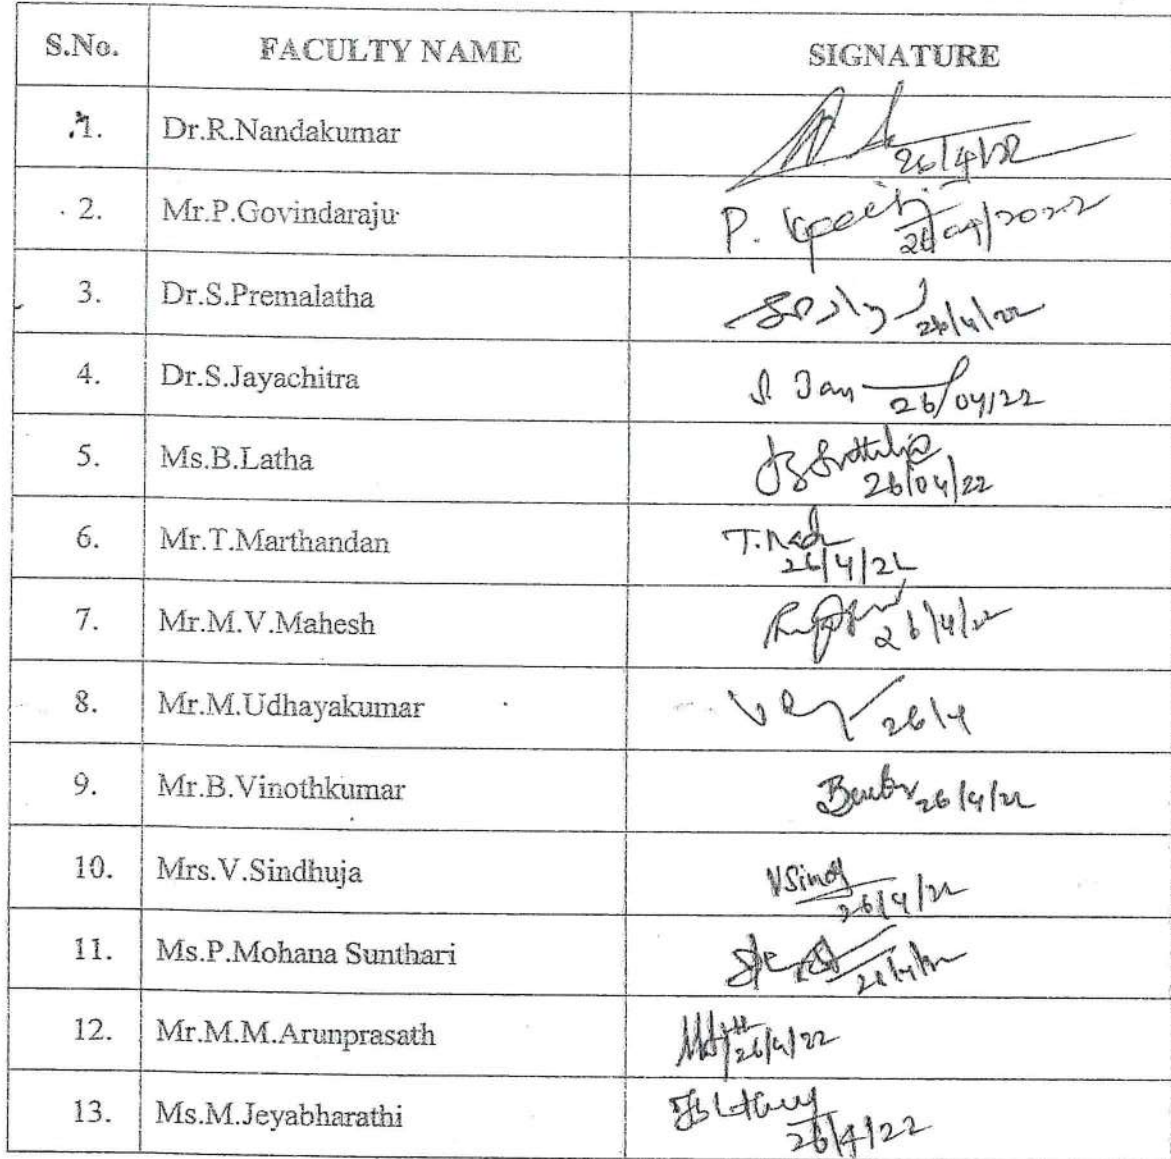 S.No. FACULTY NAME SIGNATURE
1. Dr.R.Nandakumar
26/4/22
2. Mr.P.Govindaraju P.
26/04/2022
3. Dr.S.Premalatha
26/4/22
4. Dr.S.Jayachitra
26/04/22
5. Ms.B.Latha
26/04/22
6. Mr.T.Marthandan
26/4/22
7. Mr.M.V.Mahesh 26/4/22
8. Mr.M.Udhayakumar 26/4
9. Mr.B.Vinothkumar 26/4/22
10. Mrs.V.Sindhuja
26/4/22
11. Ms.P.Mohana Sunthari
26/4/22
12. Mr.M.M.Arunprasath 26/4/22
13. Ms.M.Jeyabharathi
26/4/22